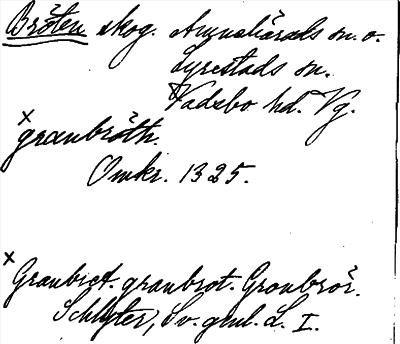 Bröten skog. Amnehärads sn. o.
Lyrestads sn.
Vadsbo hd. Vg.
x
granbröth.
Omkr. 1325.
x
Granbret. granbrot. Gronbrör.
Schlyter, Sv. gml. L. I.